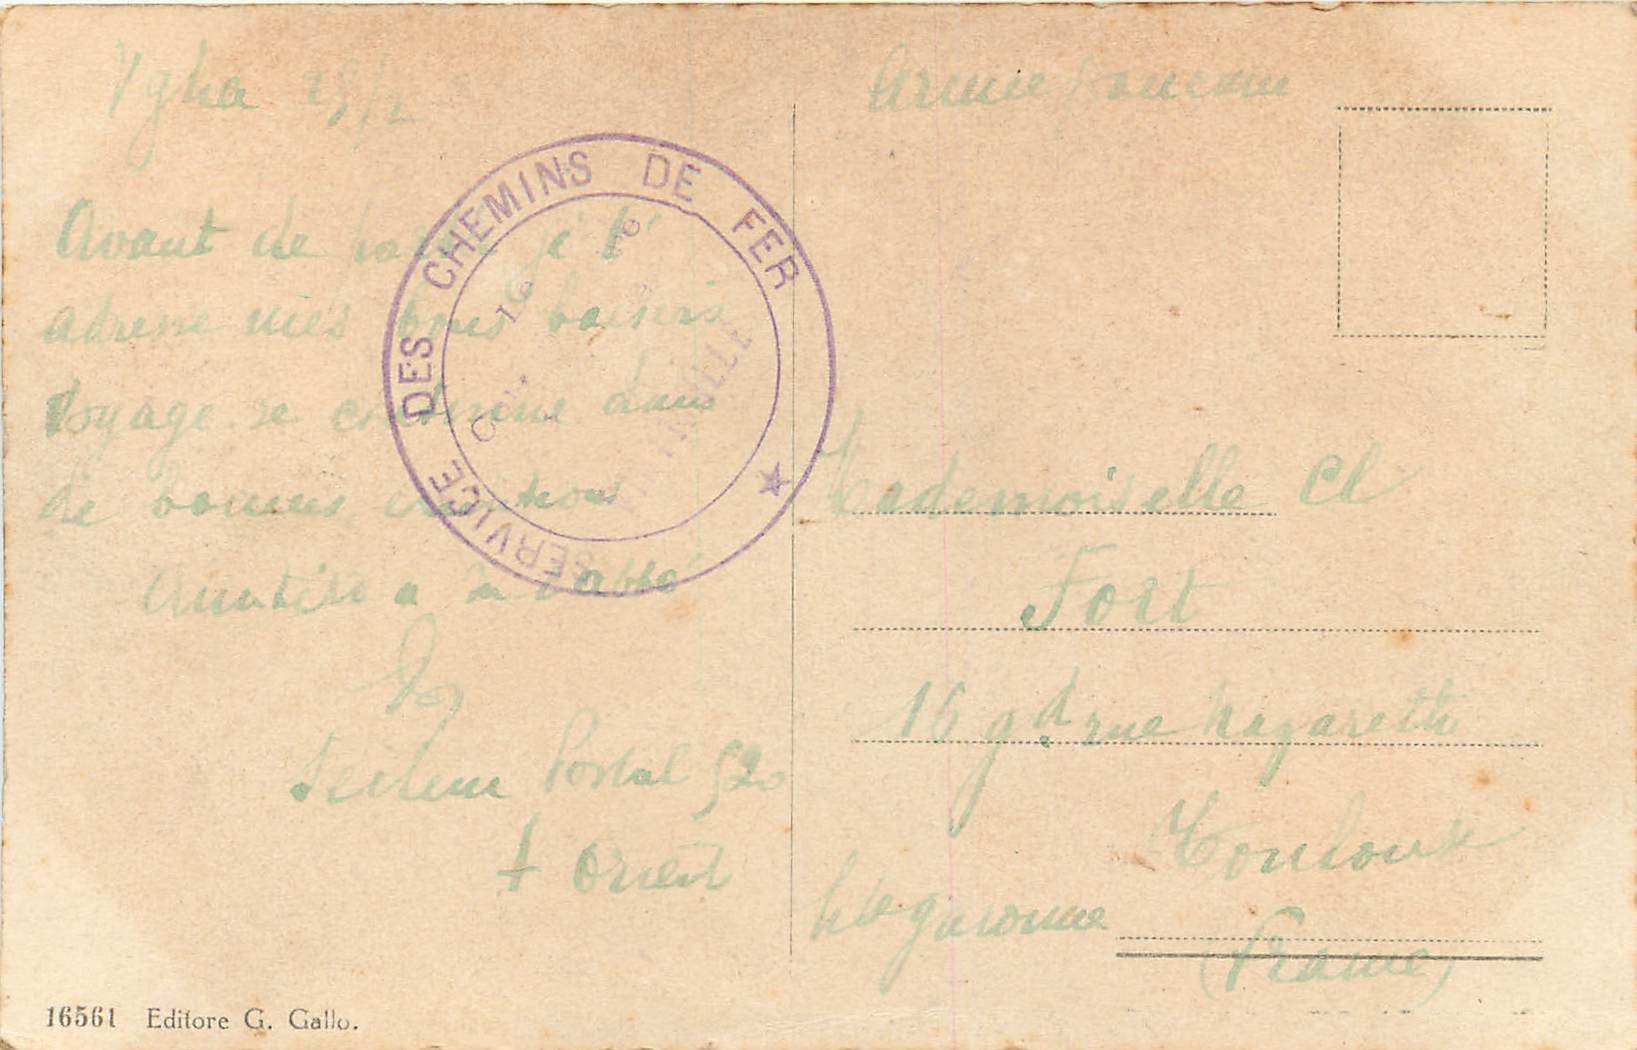 Avant de je t'
adresse mes bons baisers
Voyage se continue dans
de bonnes conditions
Amitiés a
Secteur Postal 520
Orient
SERVICE DES CHEMINS DE FER
Armée
Mademoiselle Cl
Fort
16 gd rue Nazareth
Toulouse
Hte garonne
(France)
16561 Editore G. Gallo.